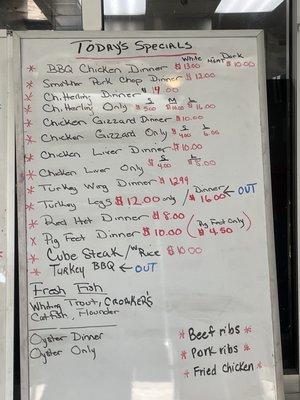 TODAY'S SPECIALS
White Dark
MEAT
* BBQ CHICKEN DINNER $13.00 $10.00
* Smother Pork Chop Dinner $12.00
* Ch.Herling Dinner $14.00
S M L
* Ch.Herling Only $5.00 $16.00
* CHICKEN Gizzard Dinner $10.00
S L
* CHICKEN Gizzard Only $4.00 6.00
* Chicken Liver Dinner $10.00
S L
* CHICKEN Liver Only $4.00 $6.00
* TURKEY Wing Dinner $12.99
* TURKEY Legs $12.00 only / Dinner $16.00 ← OUT
* Red Hot Dinner $8.00
* Pig Feet Dinner $10.00 (Pig Feet Only) $4.50
* Cube STEAK/W RICE $10.00
* TURKEY BBQ ← OUT
Fresh Fish
Whiting Trout, CROAKER'S
CatFish, Flounder
Oyster Dinner
Oyster Only
* Beef ribs *
* Pork ribs *
* Fried Chicken *